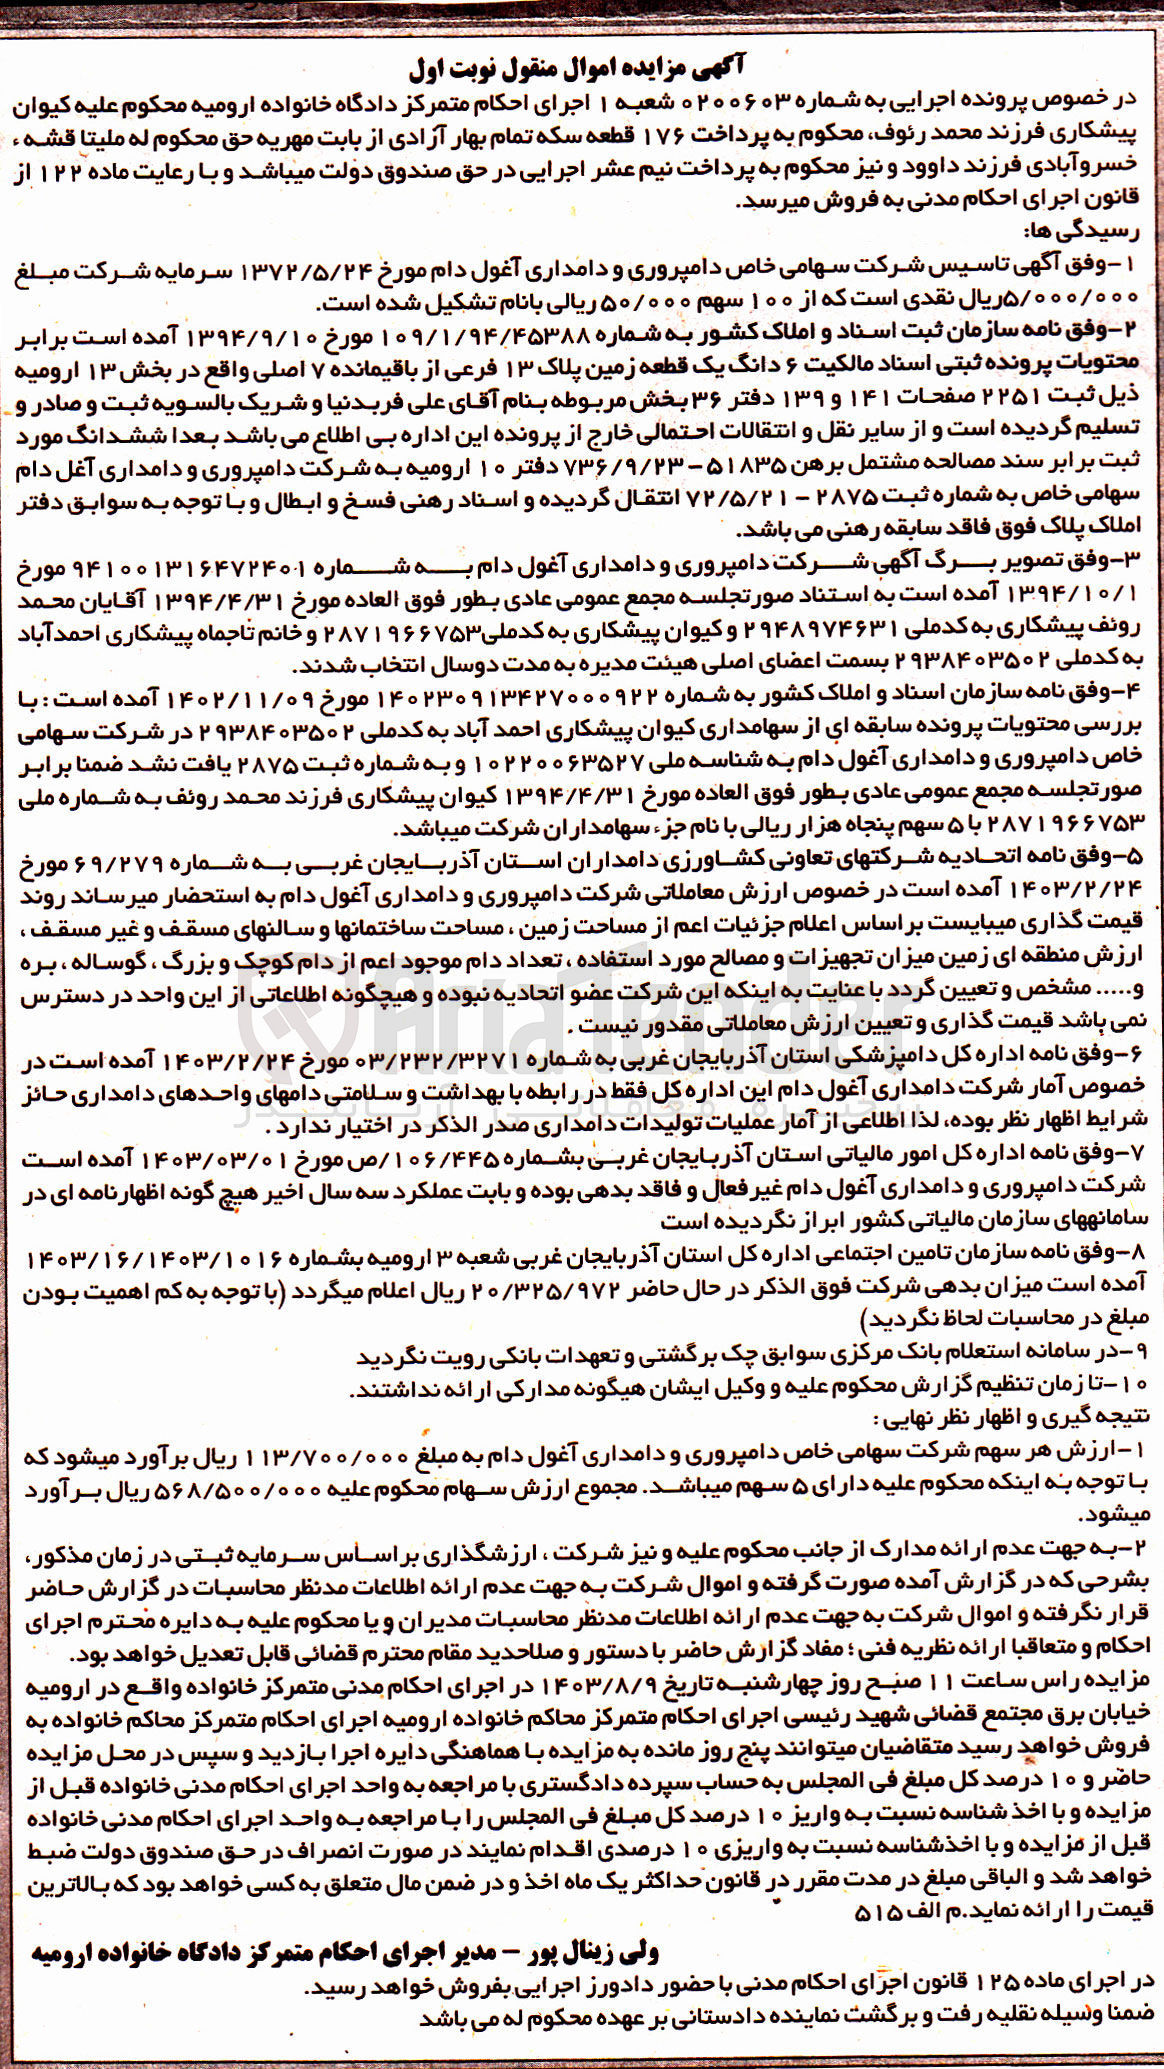 آگهی مزایده اموال منقول نوبت اول
در خصوص پرونده اجرایی به شماره ۰۲۰۰۶۰۳ شعبه ۱ اجرای احکام متمرکز دادگاه خانواده ارومیه محکوم علیه کیوان
پیشکاری فرزند محمد رئوف، محکوم به پرداخت ۱۷۶ قطعه سکه تمام بهار آزادی از بابت مهریه حق محکوم له ملیتا قشه ء
خسروآبادی فرزند داوود و نیز محکوم به پرداخت نیم عشر اجرایی در حق صندوق دولت میباشد و با رعایت ماده ۱۲۲ از
قانون اجرای احکام مدنی به فروش میرسد.
رسیدگی ها:
۱-وفق آگهی تاسیس شرکت سهامی خاص دامپروری و دامداری آغول دام مورخ ۱۳۷۲/۵/۲۴ سرمایه شرکت مبلغ
۵/۰۰۰/۰۰۰ریال نقدی است که از ۱۰۰ سهم ۵۰/۰۰۰ ریالی بانام تشکیل شده است.
۲-وفق نامه سازمان ثبت اسناد و املاک کشور به شماره ۱۰۹/۱/۹۴/۴۵۳۸۸ مورخ ۱۳۹۴/۹/۱۰ آمده است برابر
محتویات پرونده ثبتی اسناد مالکیت ۶ دانگ یک قطعه زمین پلاک ۱۳ فرعی از باقیمانده ۷ اصلی واقع در بخش ۱۳ ارومیه
ذیل ثبت ۲۲۵۱ صفحات ۱۴۱ و ۱۳۹ دفتر ۳۶ بخش مربوطه بنام آقای علی فریدنیا و شریک بالسویه ثبت و صادر و
تسلیم گردیده است و از سایر نقل و انتقالات احتمالی خارج از پرونده این اداره بی اطلاع می باشد بعدا ششدانگ مورد
ثبت برابر سند مصالحه مشتمل برهن ۵۱۸۳۵ - ۷۳۶/۹/۲۳ دفتر ۱۰ ارومیه به شرکت دامپروری و دامداری آغل دام
سهامی خاص به شماره ثبت ۲۸۷۵ - ۷۲/۵/۲۱ انتقال گردیده و اسناد رهنی فسخ و ابطال و با توجه به سوابق دفتر
املاک پلاک فوق فاقد سابقه رهنی می باشد.
۳-وفق تصویر برگ آگهی شرکت دامپروری و دامداری آغول دام به شماره ۹۴۱۰۰۱۳۱۶۴۷۲۴۰۱ مورخ
۱۳۹۴/۱۰/۱ آمده است به استناد صورتجلسه مجمع عمومی عادی بطور فوق العاده مورخ ۱۳۹۴/۴/۳۱ آقایان محمد
روئف پیشکاری به کدملی ۲۹۴۸۹۷۴۶۳۱ و کیوان پیشکاری به کدملی۲۸۷۱۹۶۶۷۵۳ و خانم تاجماه پیشکاری احمدآباد
به کدملی ۲۹۳۸۴۰۳۵۰۲ بسمت اعضای اصلی هیئت مدیره به مدت دوسال انتخاب شدند.
۴-وفق نامه سازمان اسناد و املاک کشور به شماره ۱۴۰۲۳۰۹۱۳۴۲۷۰۰۰۹۲۲ مورخ ۱۴۰۲/۱۱/۰۹ آمده است : با
بررسی محتویات پرونده سابقه ای از سهامداری کیوان پیشکاری احمد آباد به کدملی ۲۹۳۸۴۰۳۵۰۲ در شرکت سهامی
خاص دامپروری و دامداری آغول دام به شناسه ملی ۱۰۲۲۰۰۶۳۵۲۷ و به شماره ثبت ۲۸۷۵ یافت نشد ضمنا برابر
صورتجلسه مجمع عمومی عادی بطور فوق العاده مورخ ۱۳۹۴/۴/۳۱ کیوان پیشکاری فرزند محمد روئف به شماره ملی
۲۸۷۱۹۶۶۷۵۳ با ۵ سهم پنجاه هزار ریالی با نام جزء سهامداران شرکت میباشد.
۵-وفق نامه اتحادیه شرکتهای تعاونی کشاورزی دامداران استان آذربایجان غربی به شماره ۶۹/۲۷۹ مورخ
۱۴۰۳/۲/۲۴ آمده است در خصوص ارزش معاملاتی شرکت دامپروری و دامداری آغول دام به استحضار میرساند روند
قیمت گذاری میبایست بر اساس اعلام جزئیات اعم از مساحت زمین ، مساحت ساختمانها و سالنهای مسقف و غیر مسقف ،
ارزش منطقه ای زمین میزان تجهیزات و مصالح مورد استفاده ، تعداد دام موجود اعم از دام کوچک و بزرگ ، گوساله ، بره
و..... مشخص و تعیین گردد با عنایت به اینکه این شرکت عضو اتحادیه نبوده و هیچگونه اطلاعاتی از این واحد در دسترس
نمی باشد قیمت گذاری و تعیین ارزش معاملاتی مقدور نیست .
۶-وفق نامه اداره کل دامپزشکی استان آذربایجان غربی به شماره ۰۳/۲۳۲/۳۲۷۱ مورخ ۱۴۰۳/۲/۲۴ آمده است در
خصوص آمار شرکت دامداری آغول دام این اداره کل فقط در رابطه با بهداشت و سلامتی دامهای واحدهای دامداری حائز
شرایط اظهار نظر بوده، لذا اطلاعی از آمار عملیات تولیدات دامداری صدر الذکر در اختیار ندارد .
۷-وفق نامه اداره کل امور مالیاتی استان آذربایجان غربی بشماره ۱۰۶/۴۴۵/ص مورخ ۱۴۰۳/۰۳/۰۱ آمده است
شرکت دامپروری و دامداری آغول دام غیرفعال و فاقد بدهی بوده و بابت عملکرد سه سال اخیر هیچ گونه اظهارنامه ای در
سامانههای سازمان مالیاتی کشور ابراز نگردیده است
۸-وفق نامه سازمان تامین اجتماعی اداره کل استان آذربایجان غربی شعبه ۳ ارومیه بشماره ۱۴۰۳/۱۶/۱۴۰۳/۱۰۱۶
آمده است میزان بدهی شرکت فوق الذکر در حال حاضر ۲۰/۳۲۵/۹۷۲ ریال اعلام میگردد (با توجه به کم اهمیت بودن
مبلغ در محاسبات لحاظ نگردید)
۹-در سامانه استعلام بانک مرکزی سوابق چک برگشتی و تعهدات بانکی رویت نگردید
۱۰-تا زمان تنظیم گزارش محکوم علیه و وکیل ایشان هیگونه مدارکی ارائه نداشتند.
نتیجه گیری و اظهار نظر نهایی :
۱-ارزش هر سهم شرکت سهامی خاص دامپروری و دامداری آغول دام به مبلغ ۱۱۳/۷۰۰/۰۰۰ ریال برآورد میشود که
با توجه به اینکه محکوم علیه دارای ۵ سهم میباشد. مجموع ارزش سهام محکوم علیه ۵۶۸/۵۰۰/۰۰۰ ریال برآورد
میشود.
۲-به جهت عدم ارائه مدارک از جانب محکوم علیه و نیز شرکت ، ارزشگذاری بر اساس سرمایه ثبتی در زمان مذکور،
بشرحی که در گزارش آمده صورت گرفته و اموال شرکت به جهت عدم ارائه اطلاعات مدنظر محاسبات در گزارش حاضر
قرار نگرفته و اموال شرکت به جهت عدم ارائه اطلاعات مدنظر محاسبات مدیران و یا محکوم علیه به دایره محترم اجرای
احکام و متعاقبا ارائه نظریه فنی ؛ مفاد گزارش حاضر با دستور و صلاحدید مقام محترم قضائی قابل تعدیل خواهد بود.
مزایده راس ساعت ۱۱ صبح روز چهارشنبه تاریخ ۱۴۰۳/۸/۹ در اجرای احکام مدنی متمرکز خانواده واقع در ارومیه
خیابان برق مجتمع قضائی شهید رئیسی اجرای احکام متمرکز محاکم خانواده ارومیه اجرای احکام متمرکز محاکم خانواده به
فروش خواهد رسید متقاضیان میتوانند پنج روز مانده به مزایده با هماهنگی دایره اجرا بازدید و سپس در محل مزایده
حاضر و ۱۰ درصد کل مبلغ فی المجلس به حساب سپرده دادگستری با مراجعه به واحد اجرای احکام مدنی خانواده قبل از
مزایده و با اخذ شناسه نسبت به واریز ۱۰ درصد کل مبلغ فی المجلس را با مراجعه به واحد اجرای احکام مدنی خانواده
قبل از مزایده و با اخذشناسه نسبت به واریزی ۱۰ درصدی اقدام نمایند در صورت انصراف در حق صندوق دولت ضبط
خواهد شد و الباقی مبلغ در مدت مقرر در قانون حداکثر یک ماه اخذ و در ضمن مال متعلق به کسی خواهد بود که بالاترین
قیمت را ارائه نماید.م الف ۵۱۵
ولی زینال پور - مدیر اجرای احکام متمرکز دادگاه خانواده ارومیه
در اجرای ماده ۱۲۵ قانون اجرای احکام مدنی با حضور دادورز اجرایی بفروش خواهد رسید.
ضمنا وسیله نقلیه رفت و برگشت نماینده دادستانی بر عهده محکوم له می باشد
AriaTender